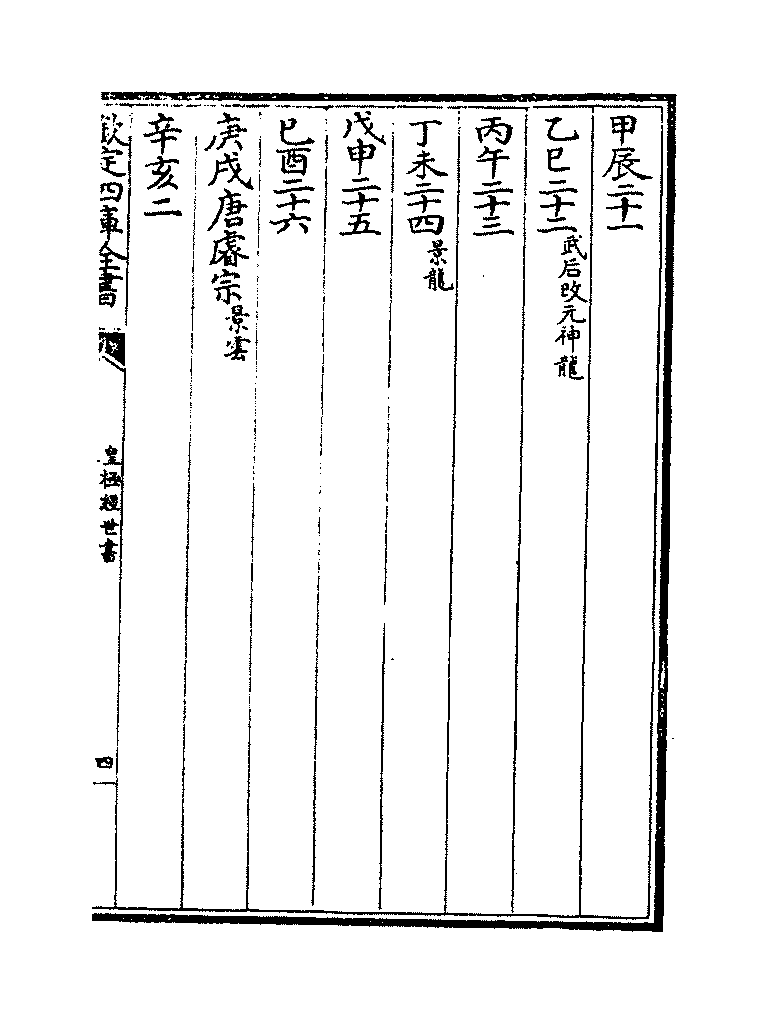 甲辰二十一
乙巳二十二武后改元神龍
丙午二十三
丁未二十四景龍
戊申二十五
己酉二十六
庚戌唐睿宗景雲
辛亥二
欽定四庫全書
皇極經世書
四